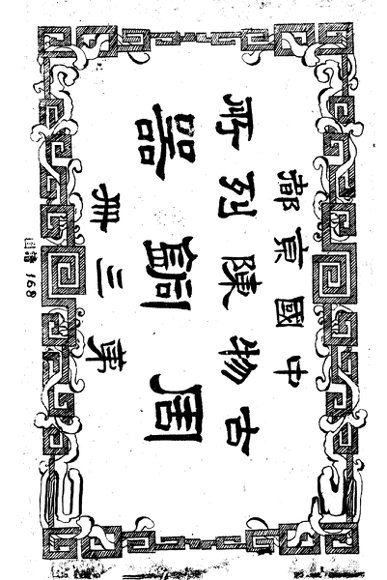 中國京都
古物陳列所
周銅器
第三冊
168